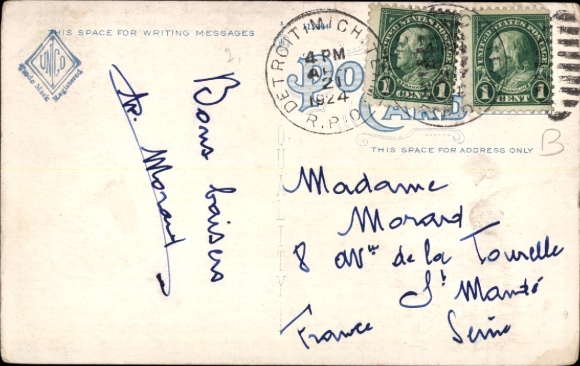 THIS SPACE FOR WRITING MESSAGES
UNICO
Trade Mark
Registered
Bons baisers
Morard
DETROIT, MICH.
4 PM
21
1924
R.P.O.
UNITED STATES POSTAGE
1 CENT 1
UNITED STATES POSTAGE
1 CENT 1
POST
CARD
QUALITY
THIS SPACE FOR ADDRESS ONLY
B
Madame
Morard
8 avue de la Tourelle
St Mandé
Seine
France